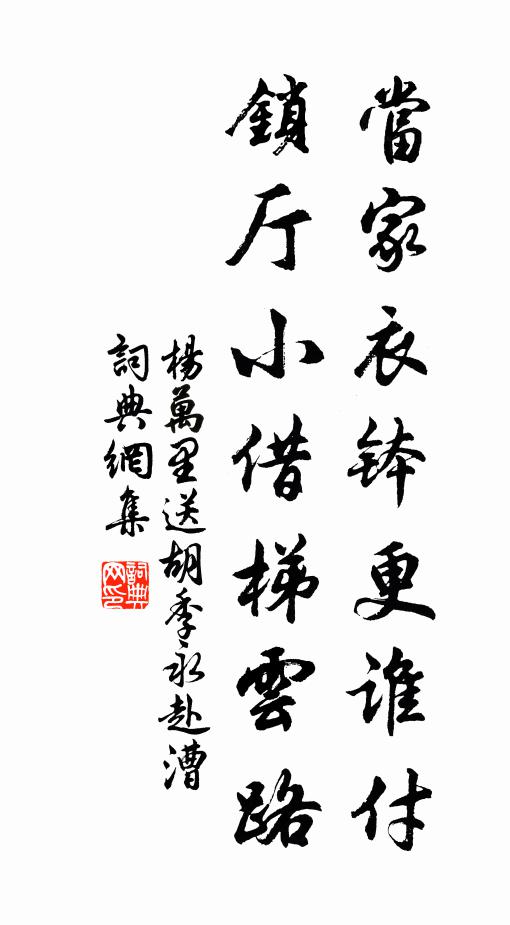 當家衣鉢更誰付
鎖厅小借梯雲路
楊萬里送胡季永赴漕
詞典網集
詞典网印